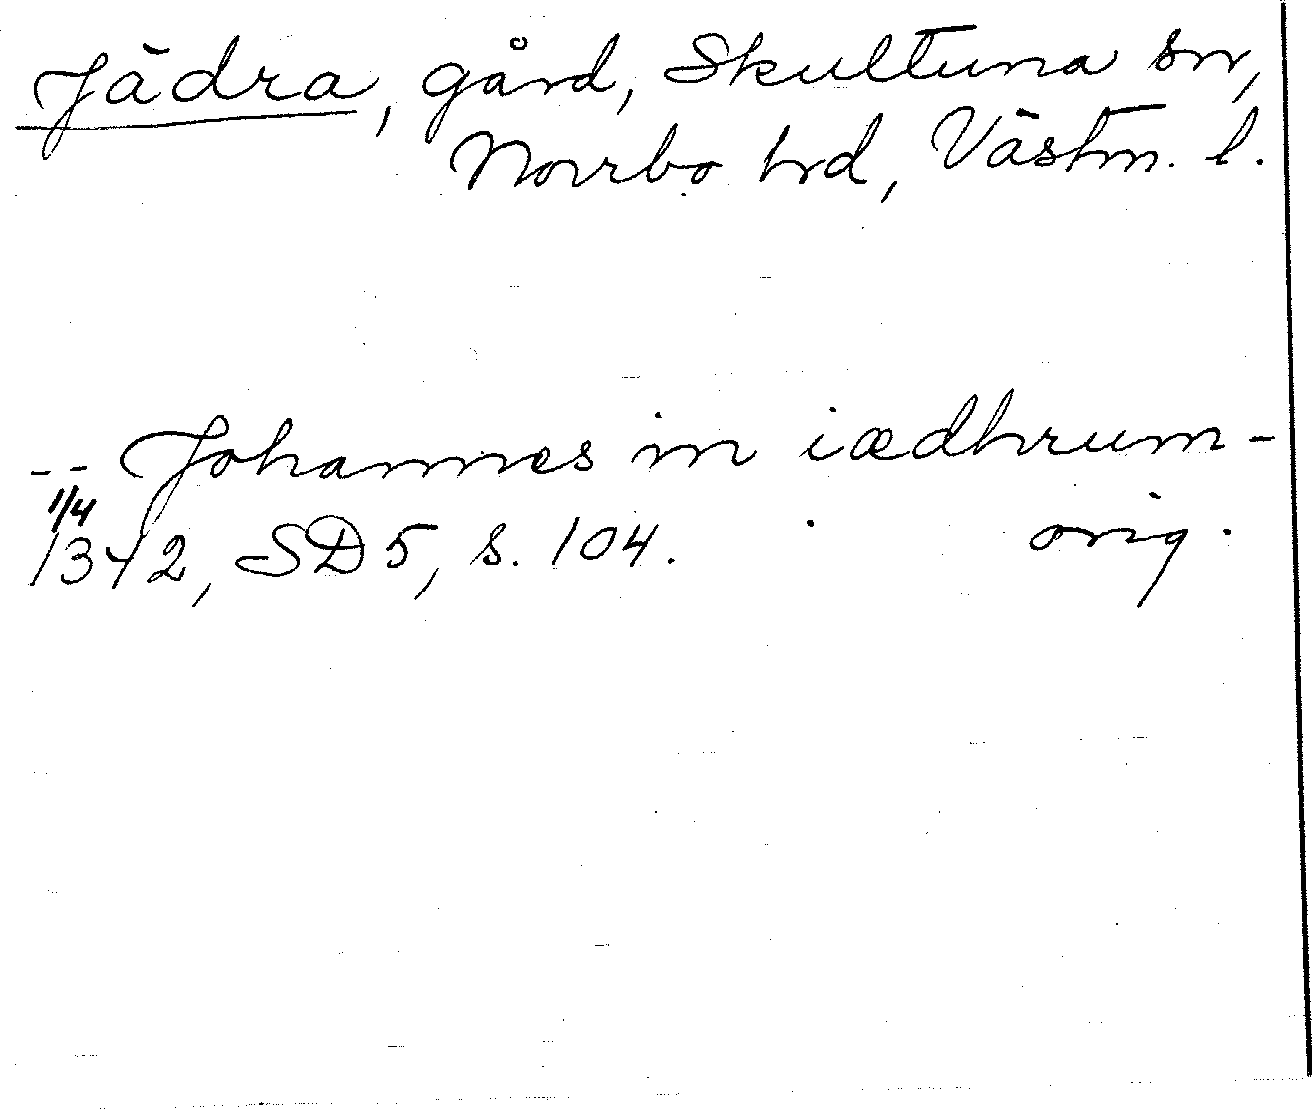 Jädra, gård, Skultuna sn,
Norrbo hd, Västm. l.
-- Johannes in iædhrum -
1/4
1342, SD 5, s. 104. orig.